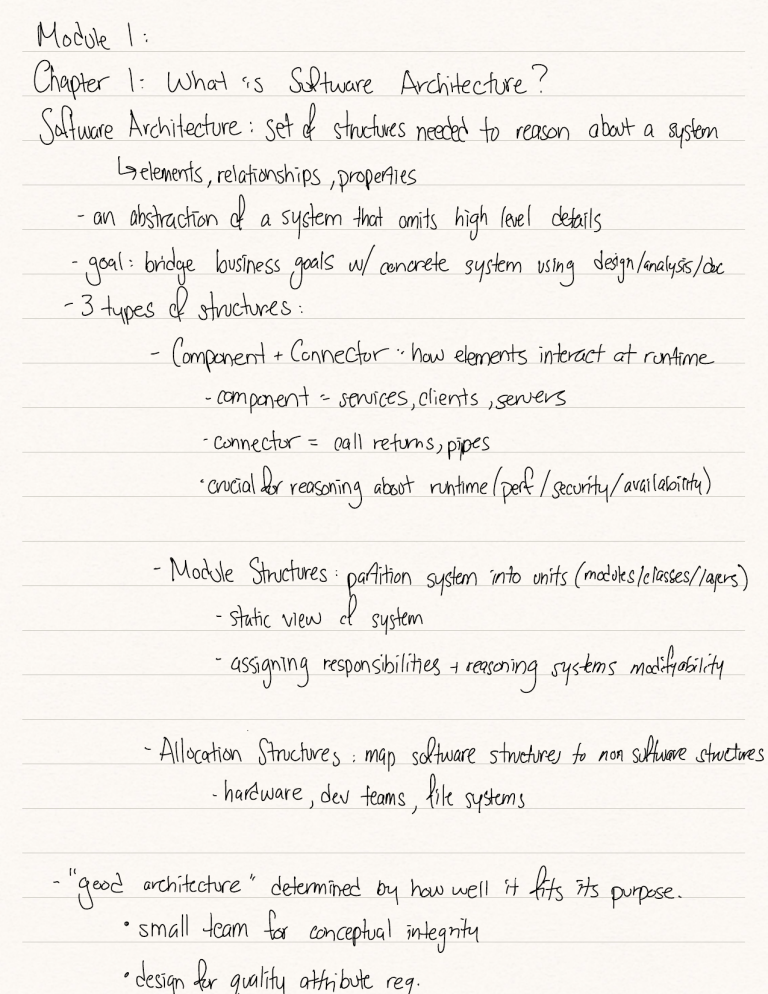 Module 1:
Chapter 1: What is Software Architecture?
Software Architecture: set of structures needed to reason about a system
↳ elements, relationships, properties
- an abstraction of a system that omits high level details
- goal: bridge business goals w/ concrete system using design/analysis/doc
- 3 types of structures:
- Component + Connector: how elements interact at runtime
- component = services, clients, servers
- connector = call returns, pipes
• crucial for reasoning about runtime (perf/security/availability)
- Module Structures: partition system into units (modules/classes/layers)
- static view of system
- assigning responsibilities + reasoning systems modifyability
- Allocation Structures: map software structures to non software structures
- hardware, dev teams, file systems
- "good architecture" determined by how well it fits its purpose.
• small team for conceptual integrity
• design for quality attribute req.